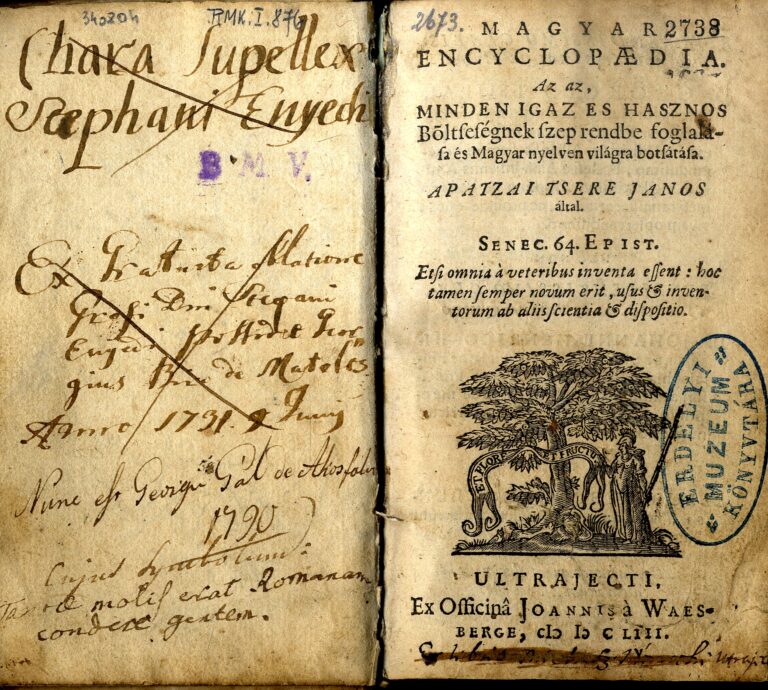 340204
RMK. I. 876
Chara Supellex
Stephani Enyedi
B. M. V.
Ex Gratuita
Anno 1731. 9 Junij
Nunc est Georgii Gál de
1790
Cujus Symbolum:
Tantae molis erat Romanam
condere gentem.
2673.
MAGYAR 2738
ENCYCLOPÆDIA.
Az az,
MINDEN IGAZ ES HASZNOS
Bőltseségnek szep rendbe foglalá-
sa és Magyar nyelven világra botsátása.
APATZAI TSERE JANOS
által.
SENEC. 64. EPIST.
Etsi omnia à veteribus inventa essent: hoc
tamen semper novum erit, usus & inven-
torum ab aliis scientia & dispositio.
ET FLORE FRUCTU
ERDÉLYI
MUZEUM
KÖNYVTÁRA
ULTRAJECTI,
Ex Officinâ JOANNIS à WAES-
BERGE, cIɔ Iɔ CLIII.